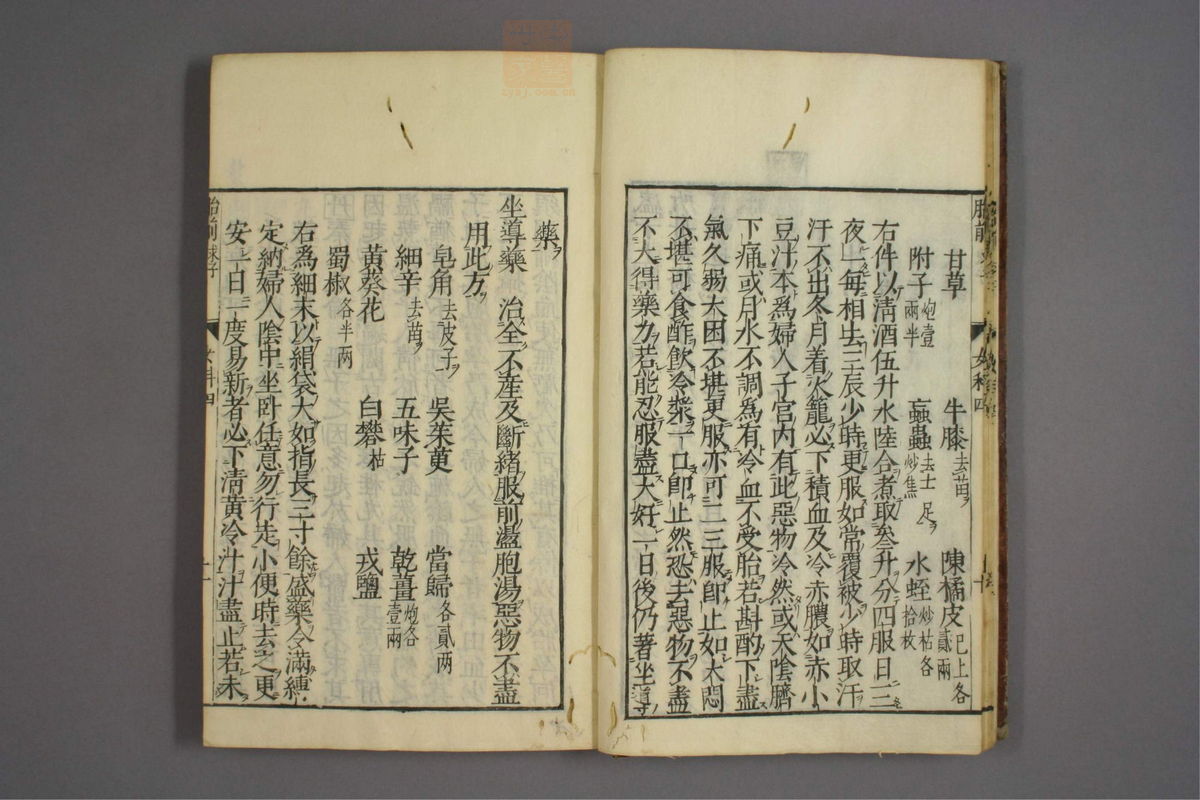 甘草 牛膝去苗 陳橘皮已上各貳兩
附子炮壹兩半 蝱蟲去土足炒焦 水蛭炒枯各拾枚
右件以清酒伍升水陸合煮取叁升分四服日三
夜一每相去三辰少時更服如常覆被少時取汗
汗不出冬月着火籠必下積血及冷赤膿如赤小
豆汁本為婦人子宮内有此惡物冷然或天陰臍
下痛或月水不調為有冷血不受胎若斟酌下盡
氣久弱大困不堪更服亦可二三服即止如大悶
不堪可食酢飲冷漿一口即止然恐去惡物不盡
不大得藥力若能忍服盡大好一日後仍著坐導
藥
坐導藥 治全不產及斷緒服前盪胞湯惡物不盡
用此方
皂角去皮子 吳茱萸 當歸各貳两
細辛去苗 五味子 乾薑炮各壹兩
黃葵花 白礬枯 戎鹽
蜀椒各半两
右為細末以絹袋大如指長三寸餘盛藥令滿縛
定納婦人陰中坐卧任意勿行走小便時去之更
安一日一度易新者必下清黃冷汁汁盡止若未
胎前求子 女科四 十一